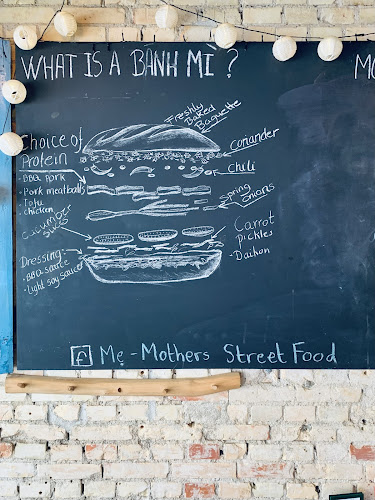 WHAT IS A BÁNH MÌ ?
Freshly
Baked
Baguette
Choice of
Protein
- BBQ pork
- Pork meatballs
- Tofu
- chicken
Cucumber
Dressing
- BBQ sauce
- Light soy sauce
Coriander
Chili
Spring
onions
Carrot
pickles
- Daikon
f Me - Mothers Street Food